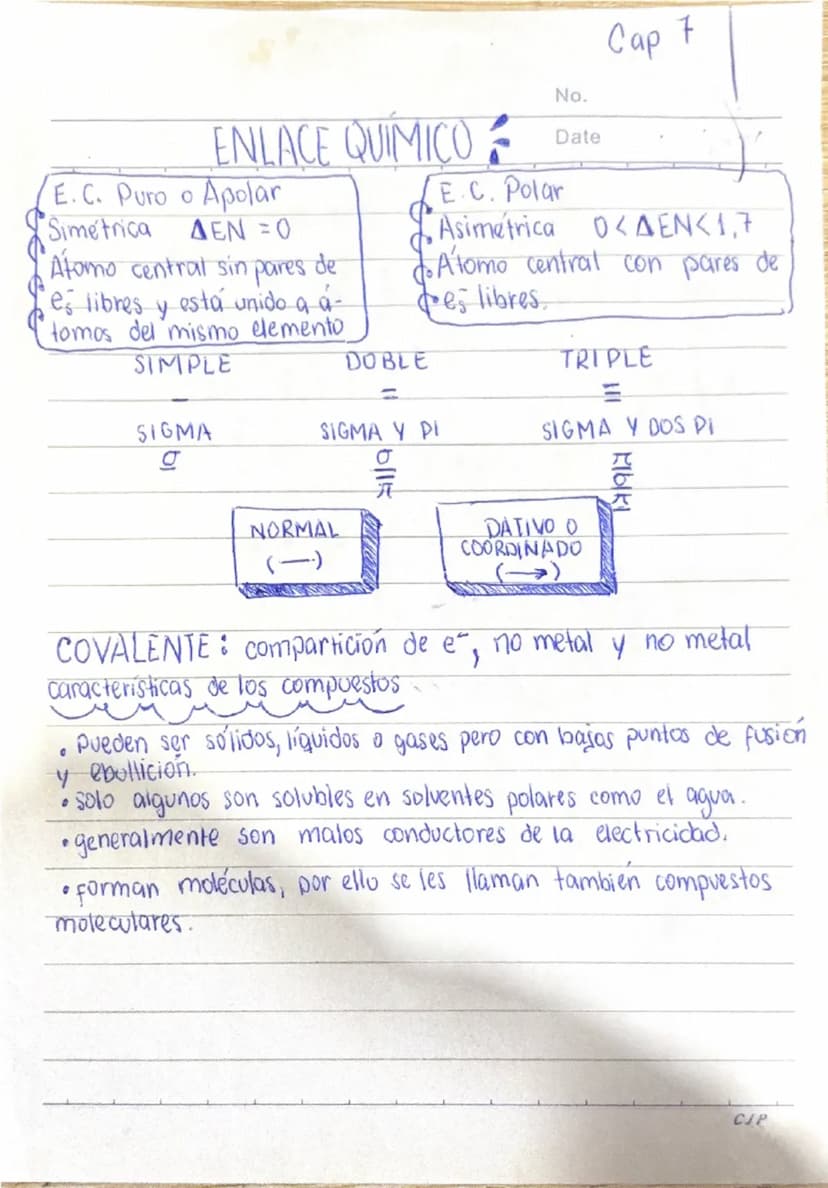 Cap 7
No.
Date
ENLACE QUÍMICO
E.C. Puro o Apolar
Simétrica ΔEN = 0
Átomo central sin pares de
e⁻s libres y está unido a á-
tomos del mismo elemento
E.C. Polar
Asimétrica 0 < ΔEN < 1,7
Átomo central con pares de
e⁻s libres.
SIMPLE DOBLE TRIPLE
− = ≡
SIGMA SIGMA Y PI SIGMA Y DOS PI
σ σ π π σ π
NORMAL
(—)
DATIVO O
COORDINADO
(→)
COVALENTE: compartición de e⁻, no metal y no metal
características de los compuestos
• pueden ser sólidos, líquidos o gases pero con bajos puntos de fusión
y ebullición.
• solo algunos son solubles en solventes polares como el agua.
• generalmente son malos conductores de la electricidad.
• forman moléculas, por ello se les llaman también compuestos
moleculares.
CJP